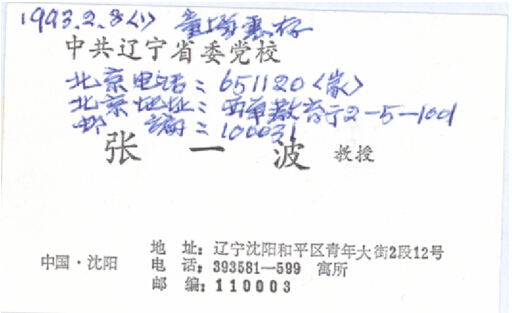 1993.2.8<1> 董场惠存
中共辽宁省委党校
北京电话：651120<家>
北京地址：西单教育宁2-5-1001
邮 编：100031
张一波 教授
中国·沈阳
地 址：辽宁沈阳和平区青年大街2段12号
电 话：393581—599 寓所
邮 编：110003